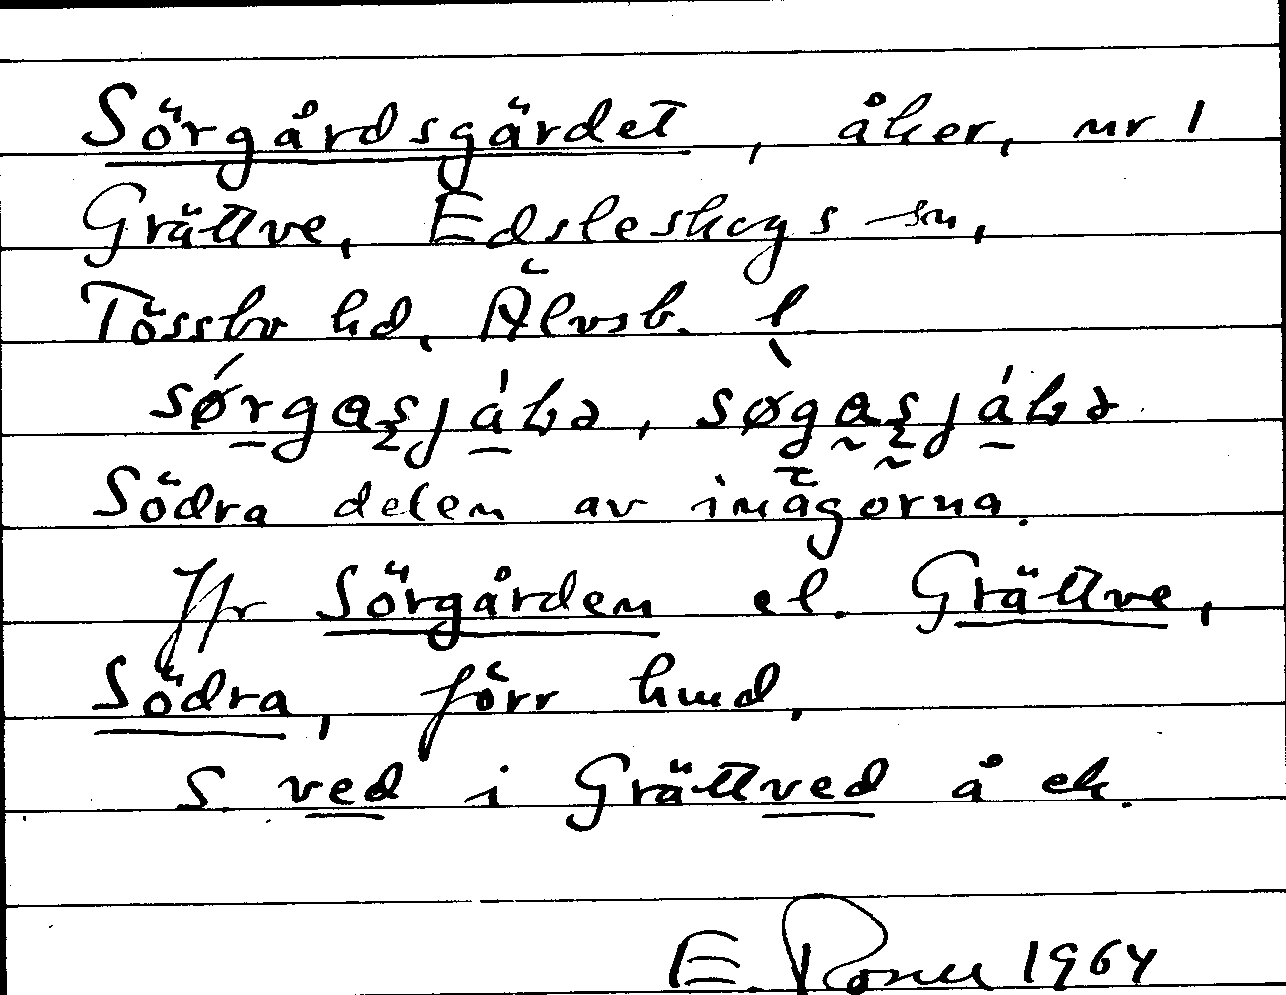 Sörgårdsgärdet, åker, nr 1
Grättve, Edsleskogs sn,
Tössbo hd, Älvsb. l.
Södra delen av inägorna.
Jfr Sörgården el. Grättve,
Södra, förr hmd.
S. ved i Grättved å ek.
E. 1964